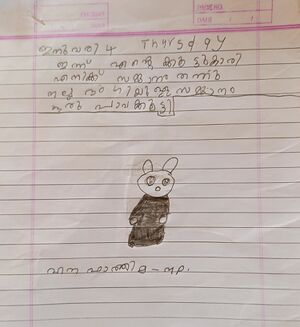 ജനുവരി 4 Thursday
ഇന്ന് എന്റെ കൂട്ടുകാരി
എനിക്ക് സമ്മാനം തന്നു
നല്ല ഭംഗിയുള്ള സമ്മാനം
ഒരു പാവക്കുട്ടി
ഫാത്തിമ